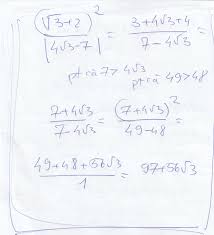 (√3+2)² / |4√3-7| = 3+4√3+4 / 7-4√3 =
pt că 7 > 4√3
pt că 49 > 48
7+4√3 / 7-4√3 = (7+4√3)² / 49-48 =
49+48+56√3 / 1 = 97+56√3